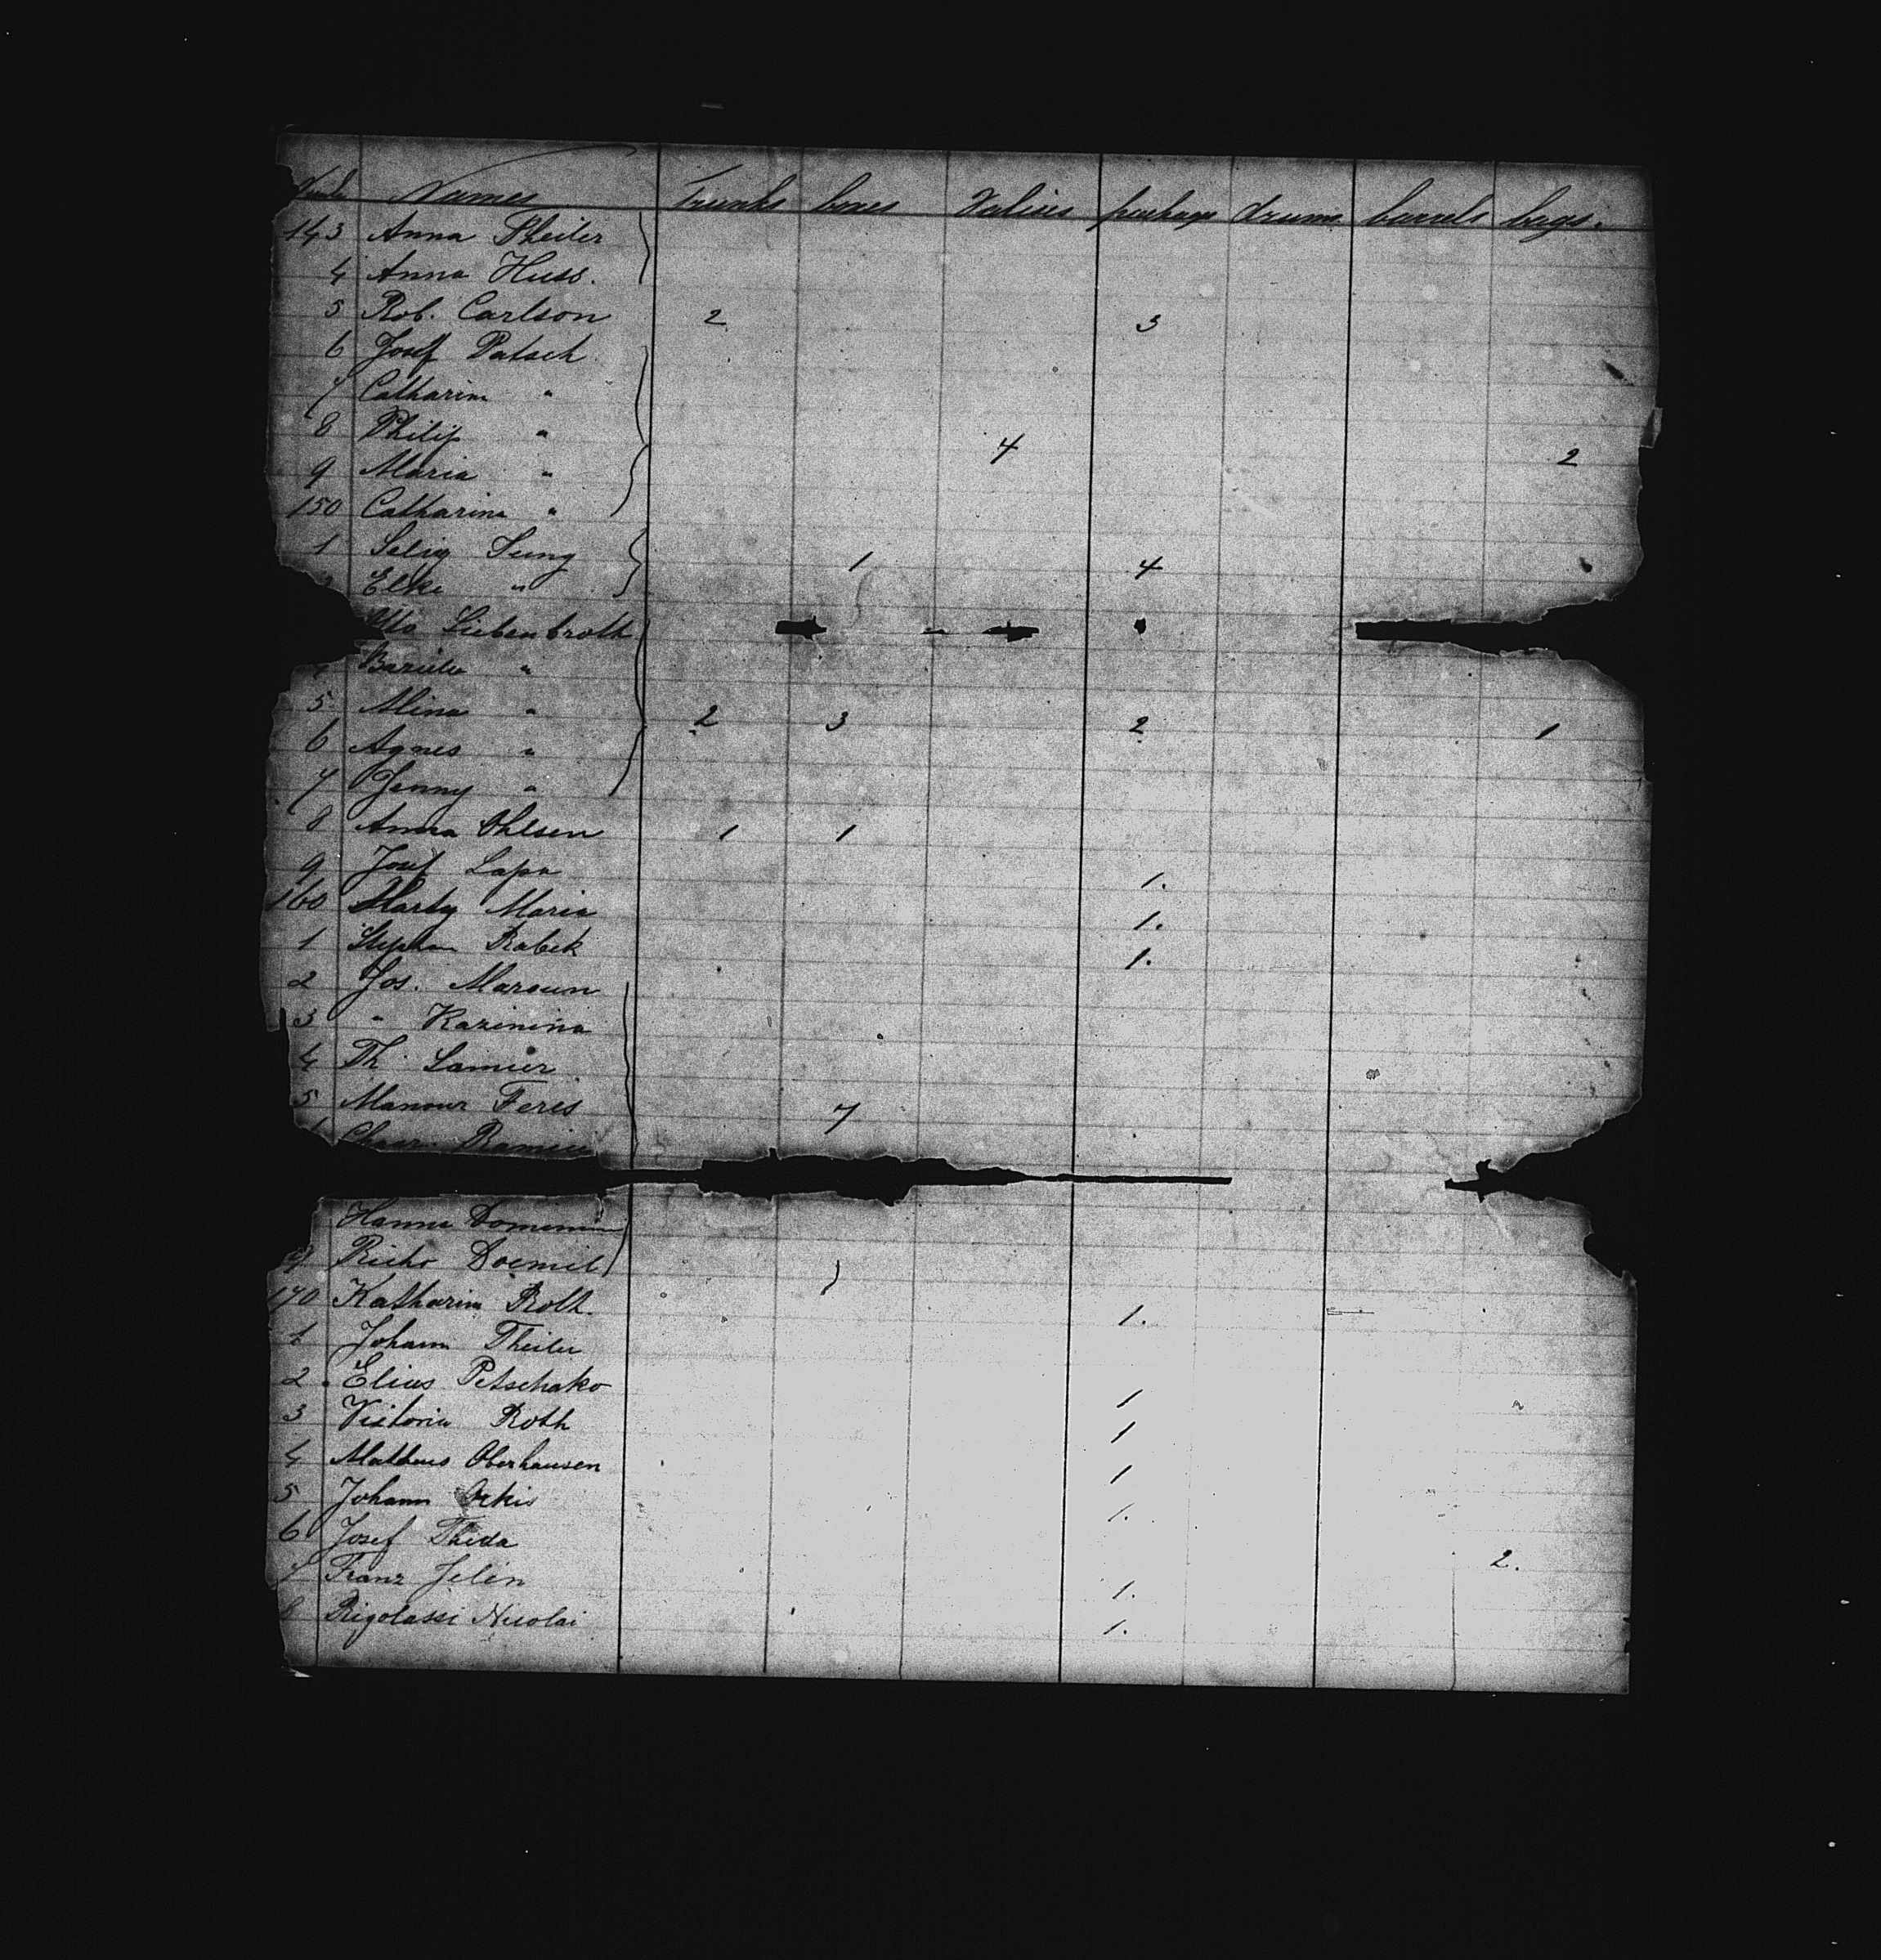 Names Trunks boxes Valises package drums barrels bags.
143 Anna Theiler
4 Anna Huss.
5 Rob. Carlson 2 3
6 Josef Patsch
7 Catharina "
8 Philip " 4 2
9 Maria "
150 Catharina "
1 Selig Jung 1 4
Elke "
Otto Liebenbroth
"
5 Mina " 2 3 2 1
6 Agnes "
7 Jenny "
8 Anna Ohlsen 1 1
9 Josef Lapa 1.
160 Marty Maria 1.
1 Stephan Rabek 1.
2 Jos. Maroun
3 " Kazinina
4 Th. Lamier
5 Manour Feres 7
Hanna
9 Doemil
170 Katharina Roth. 1.
1 Johann Theiler
2 Elias Petschako 1
3 Victoria Roth 1
4 Matheus Oberhausen 1
5 Johann 1.
6 Josef Theda 2.
7 Franz Jelen 1.
8 Rigolassi Nicolai 1.